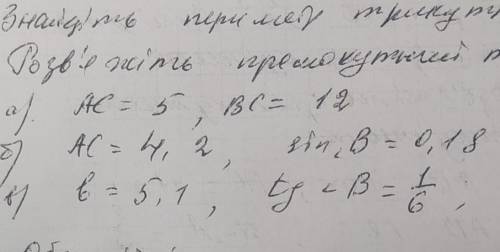 Знайдіть периметр
Розв'яжіть прямокутний
а). AC = 5, BC = 12
б) AC = 4, 2, sin ∠B = 0,18
в) b = 5,1, tg ∠B = 1/6;